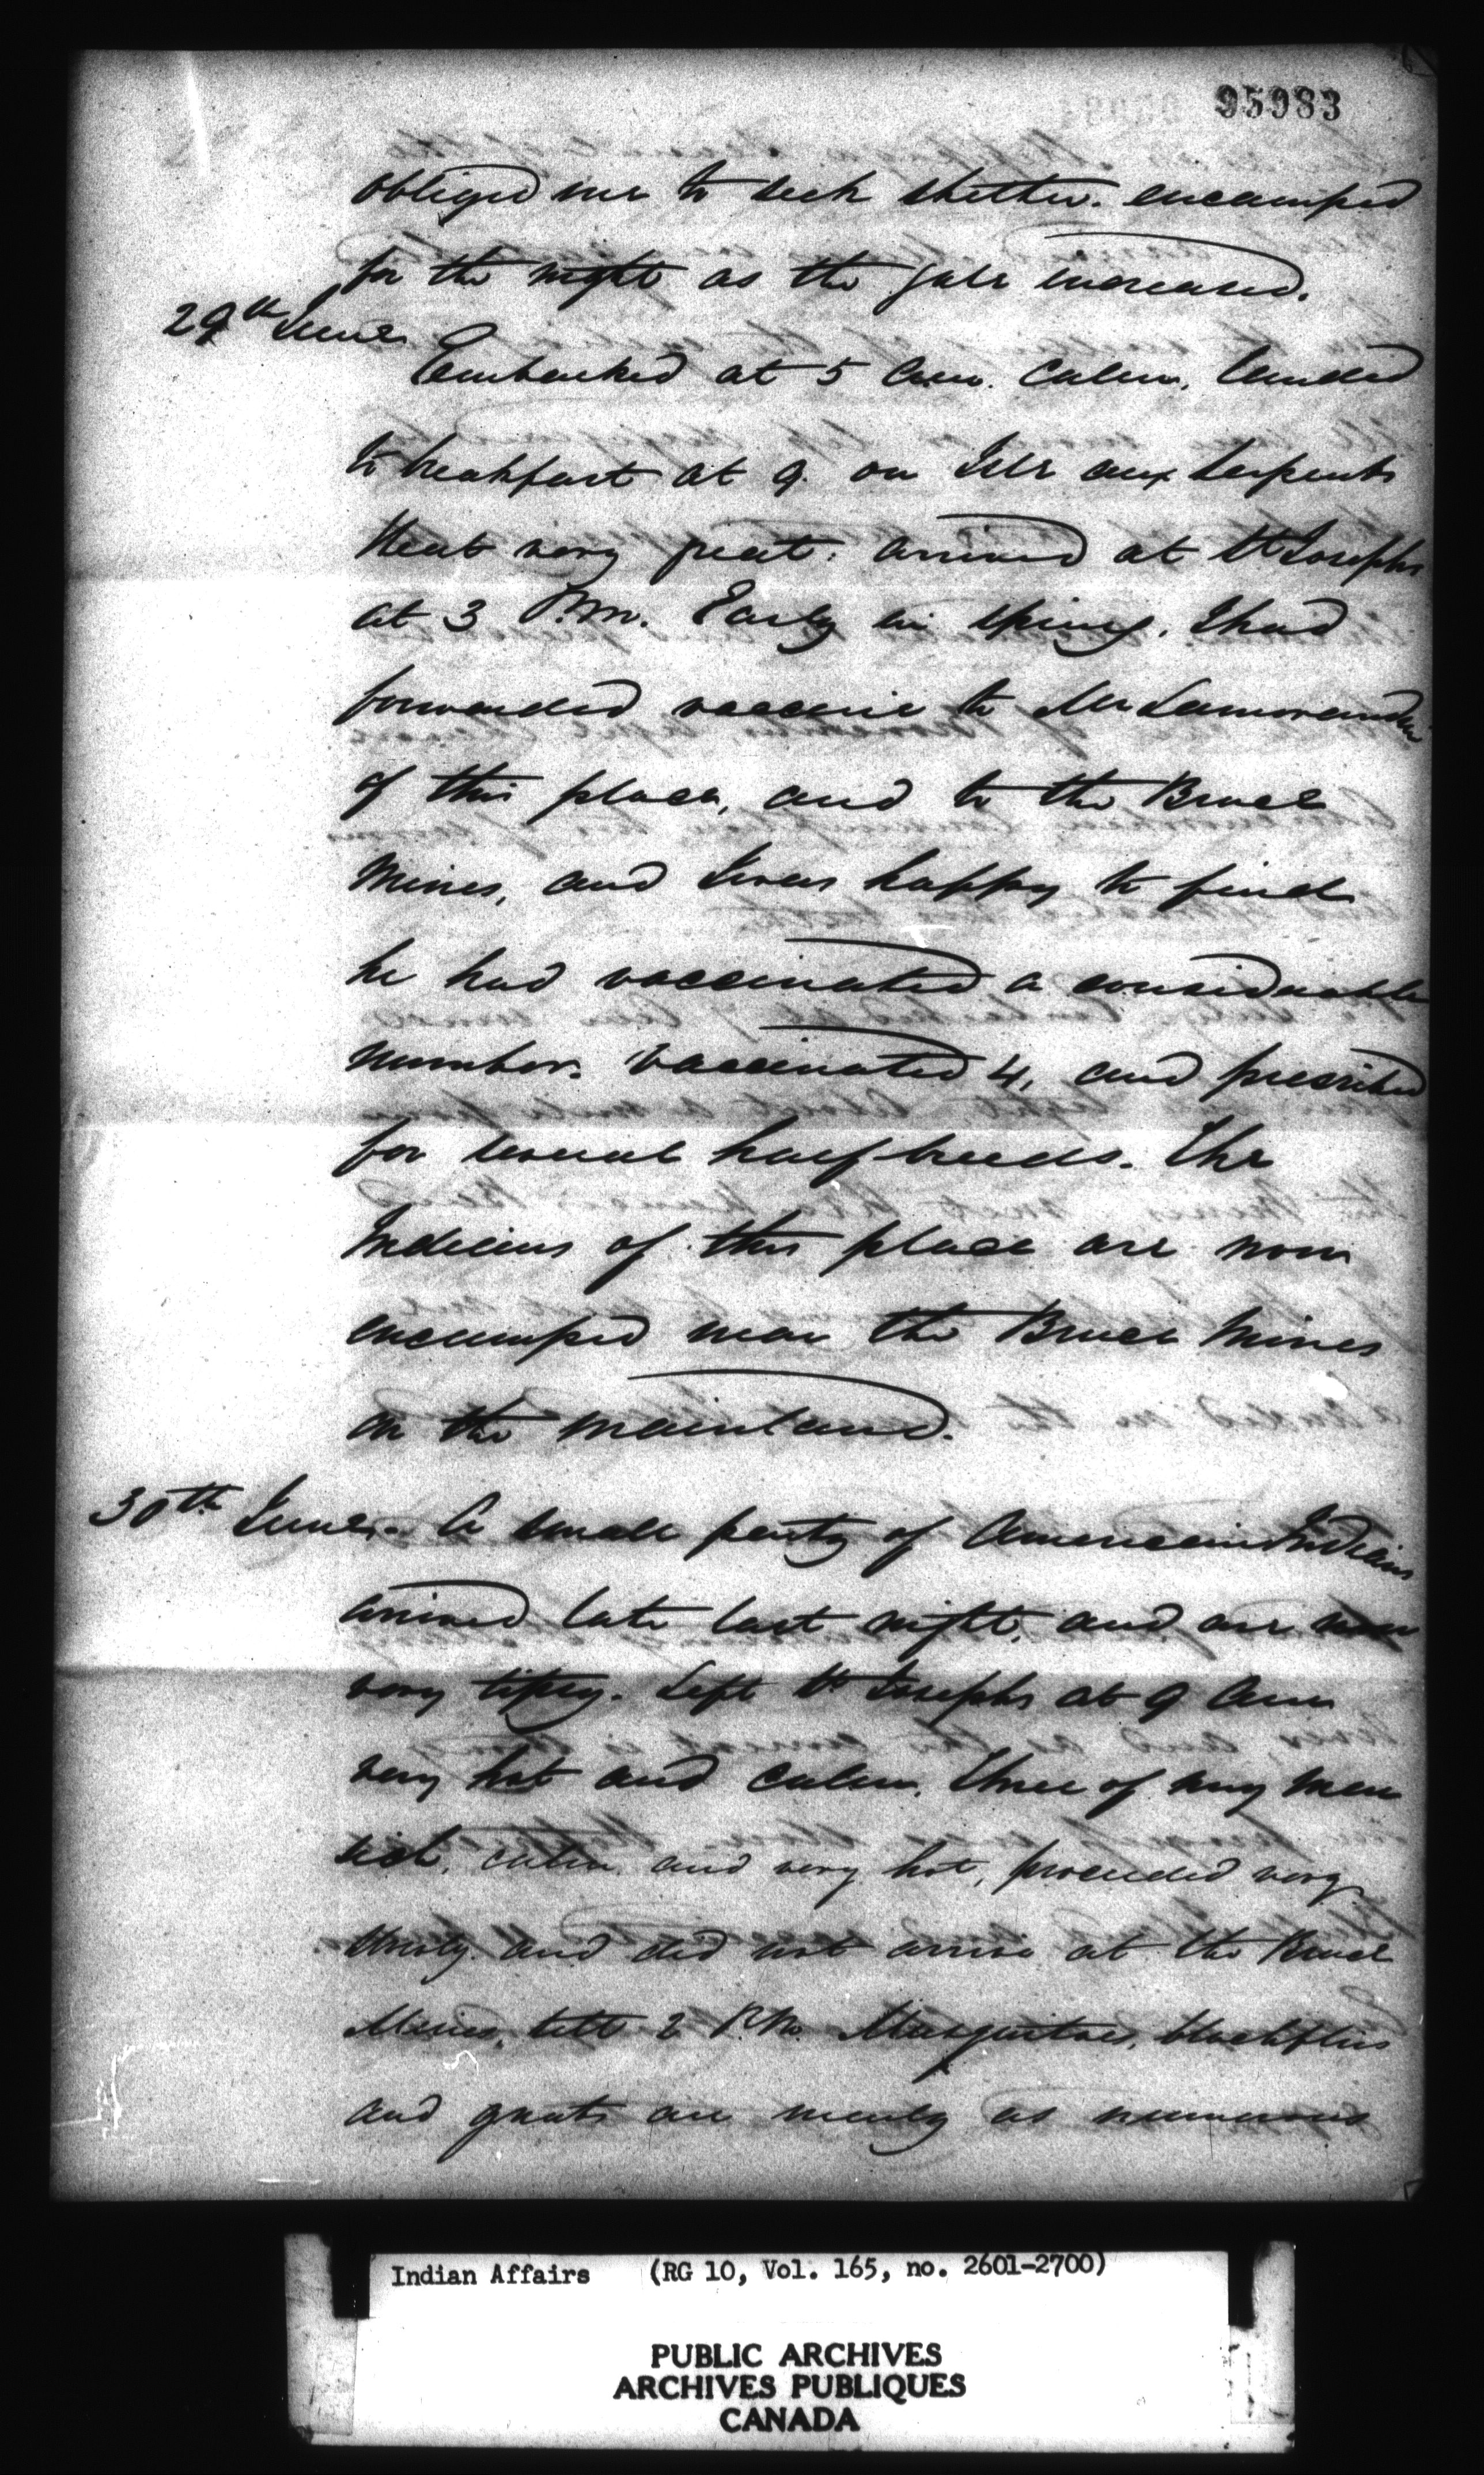 95983
obliged me to seek shelter. encamped
for the night as the gale increased.
29th June
Embarked at 5 a.m. calm. landed
to breakfast at 9. on Isle aux Serpents
Heat very great: arrived at St Josephs
at 3 P.m. Early in spring. I had
forwarded vaccine to Mr Lamorandiere
of this place, and to the Bruce
Mines, and I was happy to find
he had vaccinated a considerable
number. Vaccinated 4, and prescribed
for several half breeds. The
Indians of this place are now
encamped near the Bruce Mines
on the mainland.
30th June. A small party of American Indians
arrived late last night, and are now
very tipsy. Left St Josephs at 9 am
very hot and calm. three of my men
sick. calm and very hot, proceeded very
slowly and did not arrive at the Bruce
Mines, till 2 P.M. Musquitoes, blackflies
and gnats are nearly as numerous
Indian Affairs (RG 10, Vol. 165, no. 2601-2700)
PUBLIC ARCHIVES
ARCHIVES PUBLIQUES
CANADA